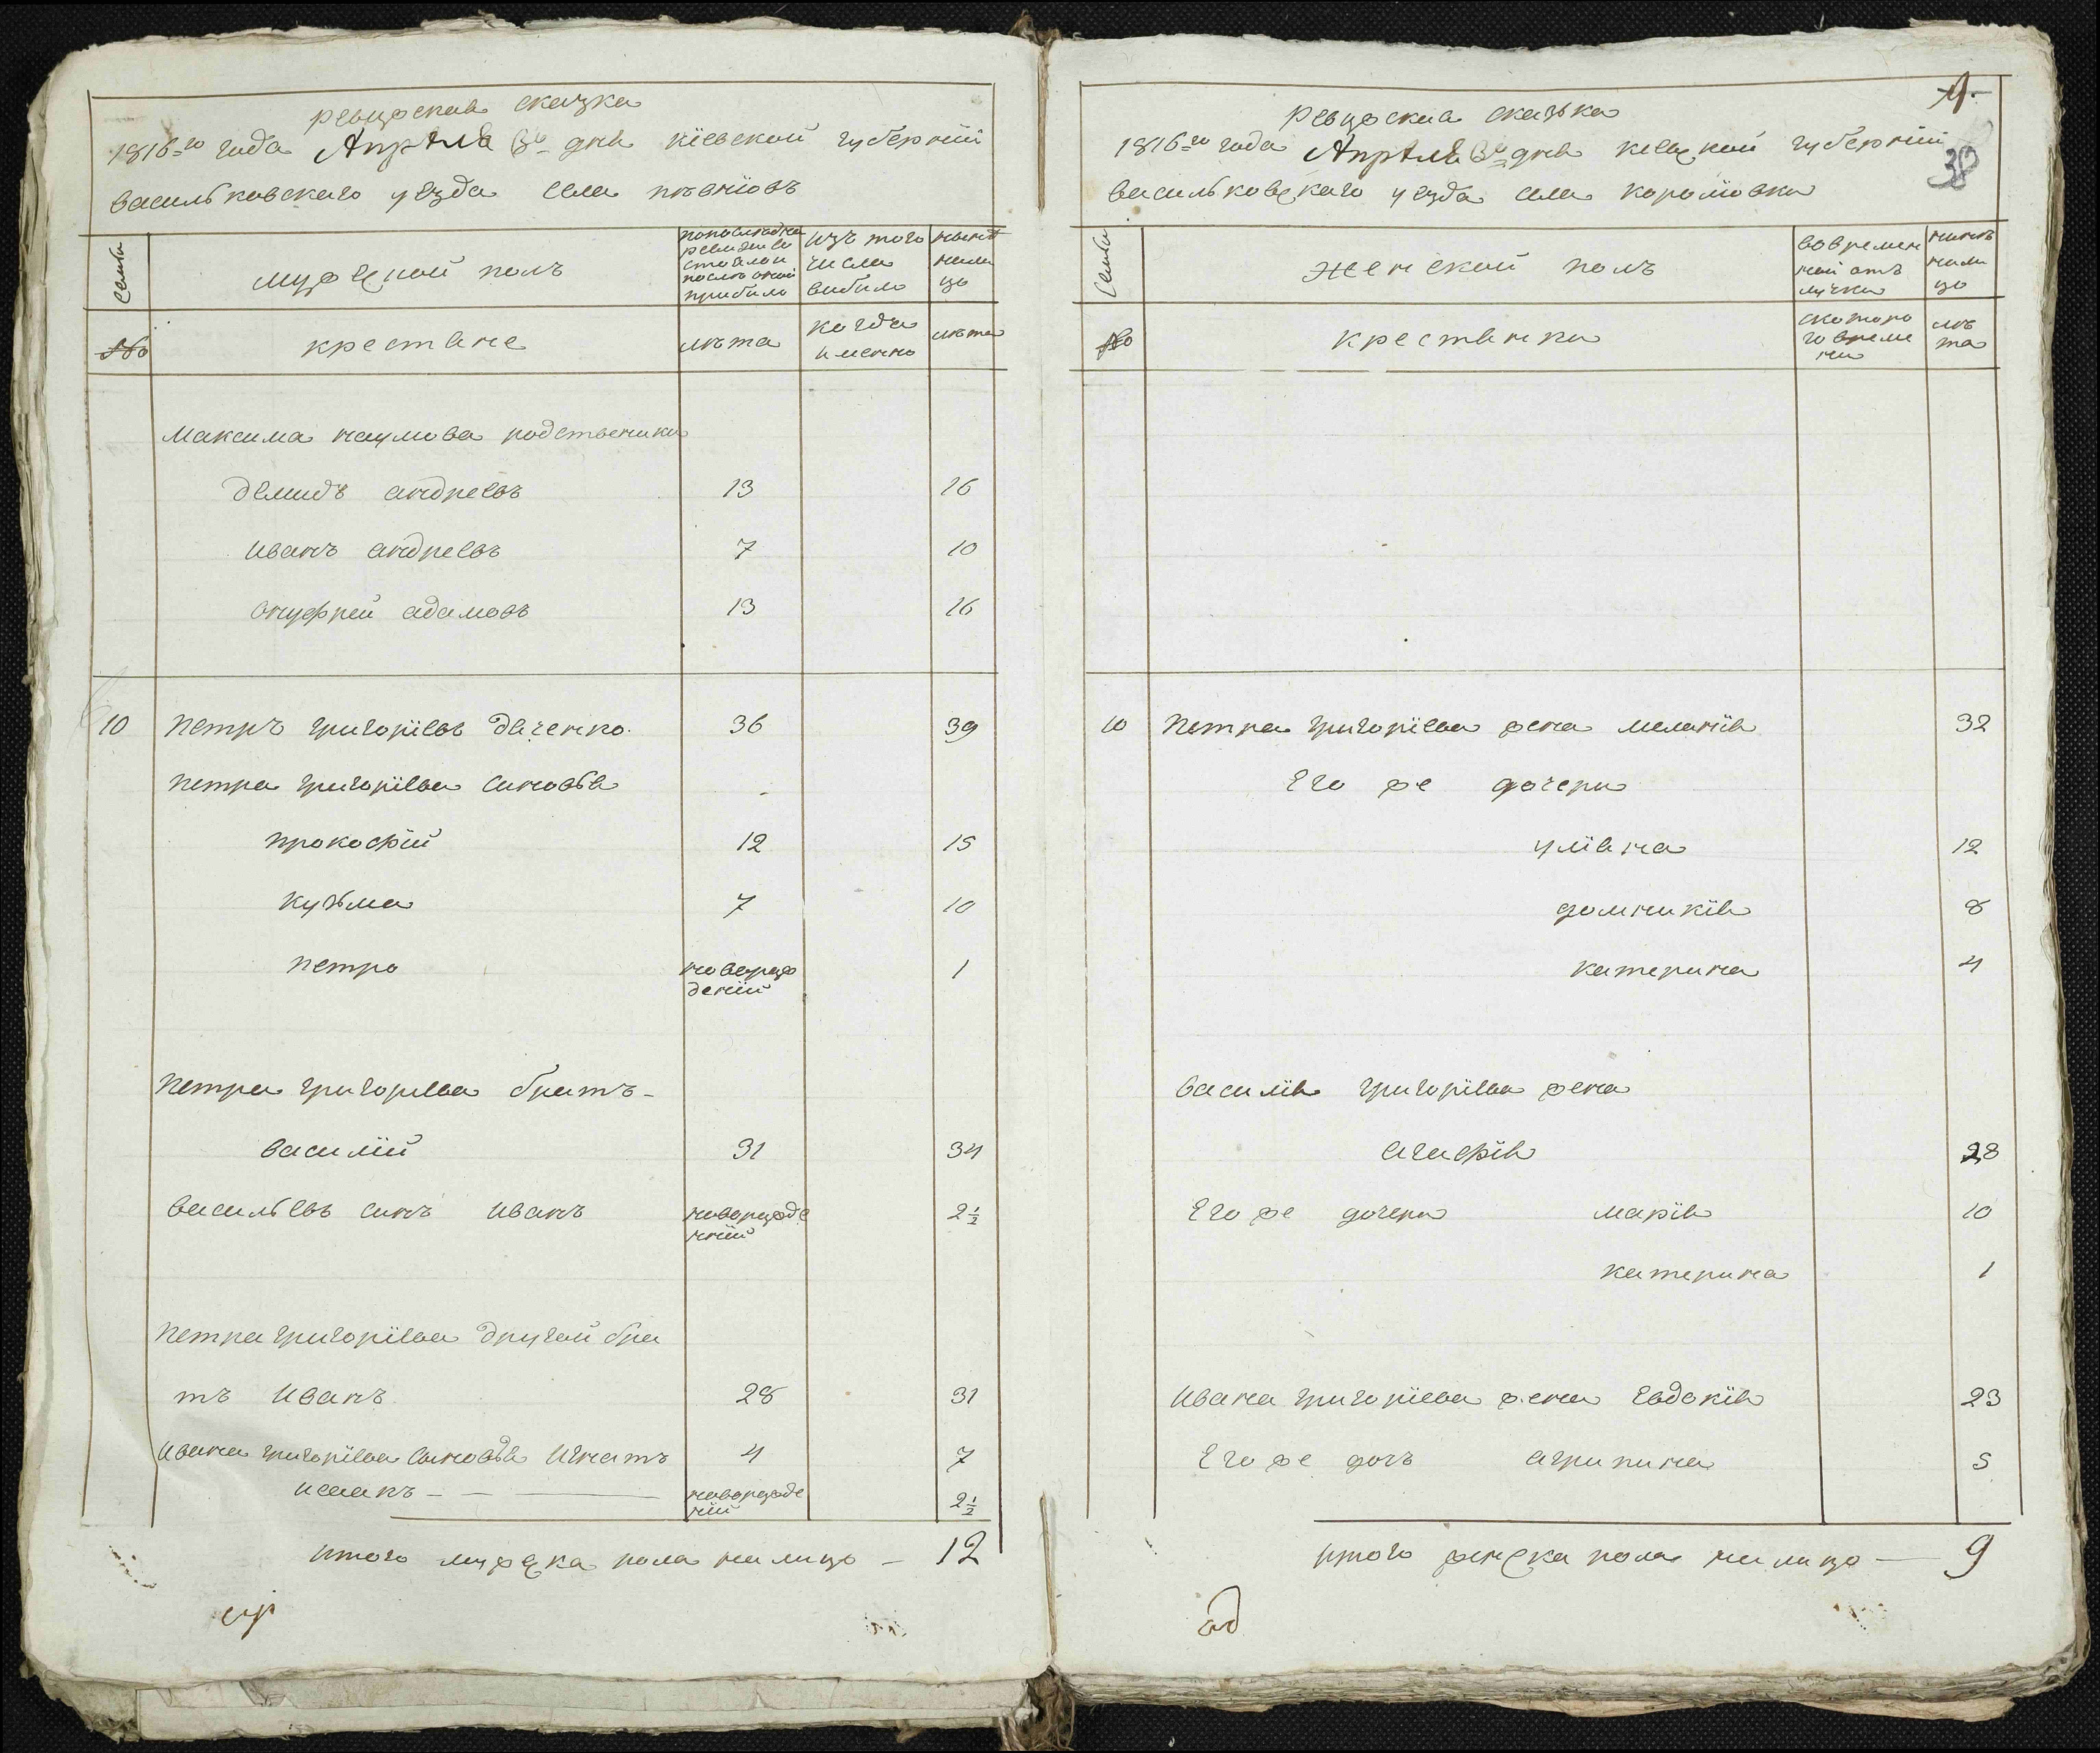 ревизская сказка
1816=го года Апреля 3го дня кіевской губерніи
васильковского уезда села
Семьи
мужеской полъ
попоследней
ревизіи со
стояло и
после оной
прибыло
изъ того
числа
выбыло
ныне
нали
цо
№
крестяне
лета
когда
именно
лета
Максима наумова родственики
демидъ андреевъ 13 16
иванъ андреевъ 7 10
онуфрей адамовъ 13 16
10 Петръ григоріевъ дяченко 36 39
петра григоріева синовья
прокофій 12 15
кузьма 7 10
петро новорож 1
деній
Петра григориева братъ -
василій 31 34
васильевъ синъ иванъ новорожде 2½
ній
Петра григоріева другой бра
тъ иванъ 28 31
ивана григоріева синовья игнатъ 4 7
исаакъ - - новорожде 2½
ній
итого мужеска пола на лицо - 12
ревизская сказка
1816=го года Апреля 3го дня киевской губерніи
васильковского уезда села
9
38
Семьи
женской полъ
вовремен
ной отъ
лучки
ныне
нали
цо
№
крестянки
скоторо
го време
ни
ле
та
10 Петра григоріева жена меланія 32
Его же дочери
уліяна 12
домникія 8
катерина 4
василія григоріева жена
агафія 28
Его же дочери марія 10
катерина 1
Ивана григоріева жена Евдокія 23
Его же дочъ агрипина 5
итого женска пола на лицо - 9